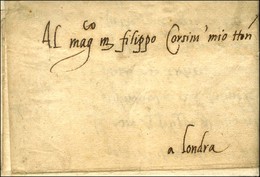 Al mag^co m filippo Corsini mio
a londra